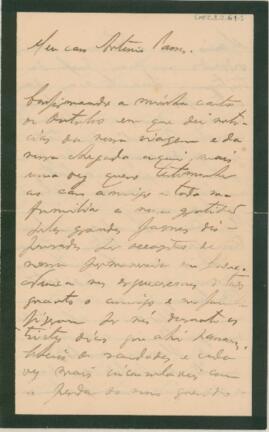 Meu caro Antonio
Confirmando a minha carta
de Outubro em que dei noti-
cias da nossa viagem e da
nossa chegada aqui, mais
uma vez quero testemunhar
ao caro amigo e toda sua
familia a nossa gratidão
pelos grandes favores dis-
pensados por occasião da
nossa permanencia em
nos esqueceremos
quanto o amigo e
fizeram por nós durante os
tristes dias que ahi passamos
cheios de saudades e cada
vez mais inconsolaveis com
a perda do nosso querido